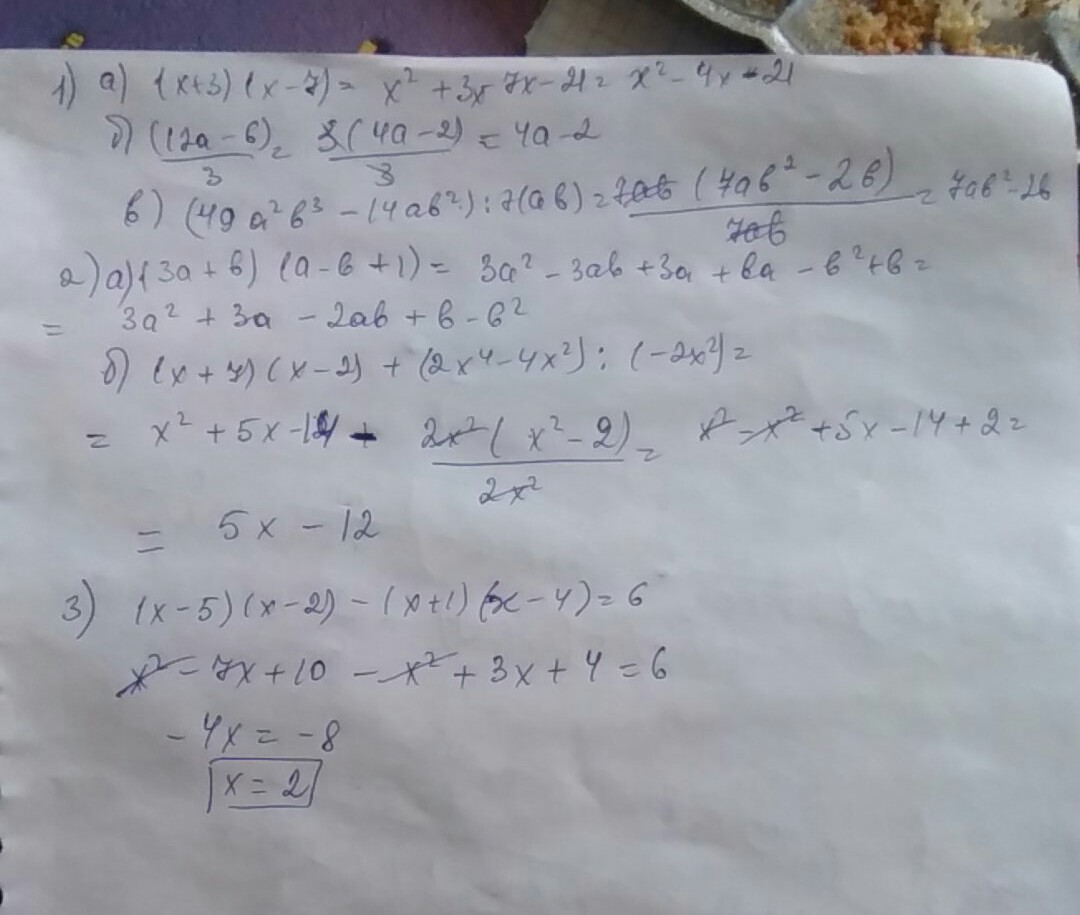 1) а) (x+3)(x-7)= x² +3x-7x-21= x²-4x-21
б) (12a-6)/3 = 3(4a-2)/3 = 4a-2
в) (49a²b³-14ab²):7(ab)=7ab(7ab²-2b)/7ab=7ab²-2b
2) а) (3a+b)(a-b+1)= 3a²-3ab+3a+ba-b²+b=
= 3a²+3a-2ab+b-b²
б) (x+7)(x-2)+(2x⁴-4x²):(-2x²)=
= x²+5x-14 - 2x²(x²-2)/2x² = x²-x²+5x-14+2=
= 5x-12
3) (x-5)(x-2)-(x+1)(x-4)=6
x²-7x+10-x²+3x+4=6
-4x=-8
x=2